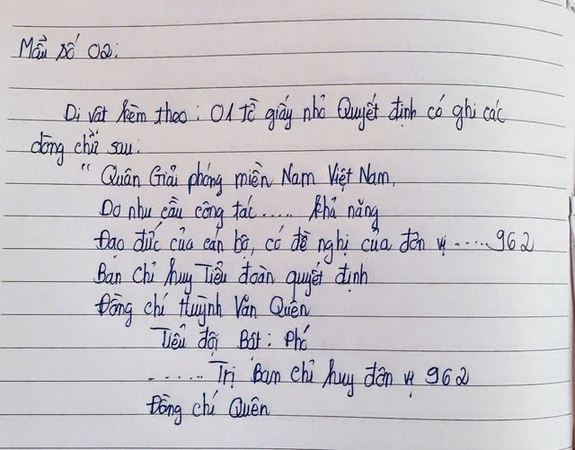 Mẫu số 02:
Di vật kèm theo: 01 tờ giấy nhỏ Quyết định có ghi các
dòng chữ sau:
" Quân Giải phóng miền Nam Việt Nam,
Do nhu cầu công tác..... khả năng
Đạo đức của cán bộ, có đề nghị của đơn vị .....962
Ban chỉ huy Tiểu đoàn quyết định
Đồng chí Huỳnh Văn Quên
Tiểu đội Bát: Phó
...... Trị Ban chỉ huy đơn vị 962
Đồng chí Quên